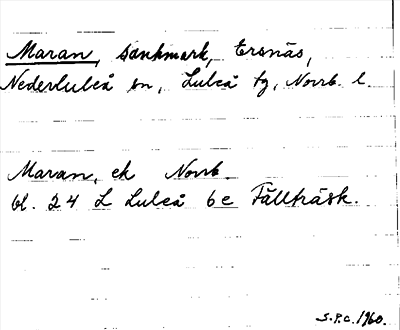 Maran, sankmark, Ersnäs,
Nederluleå sn, Luleå tg, Norrb. l.
Maran, ek Norrb.
bl. 24 L Luleå 6e Fällträsk.
S.P.C. 1960.